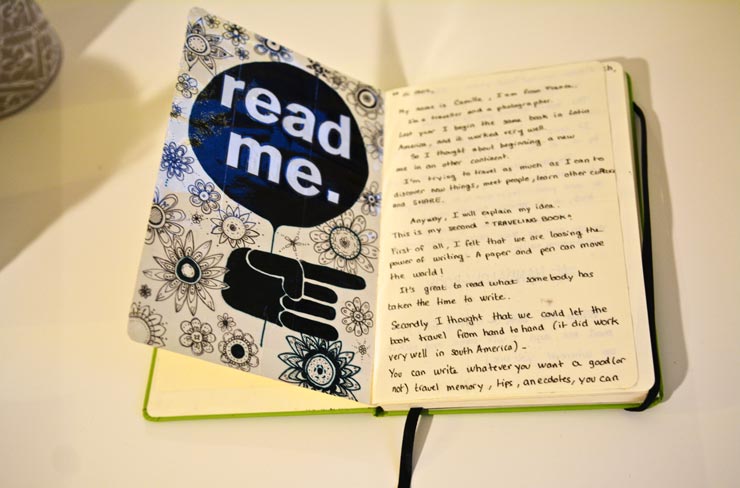 read
me.
My name is Camille, I am from France.
I'm a traveller and a photographer.
Last year I begin the same book in Latin
America, and it worked very well.
So I thought about beginning a new
me in an other continent.
I'm trying to travel as much as I can to
discover new things, meet people, learn other culture
and SHARE.
Anyway, I will explain my idea.
This is my second "TRAVELING BOOK".
First of all, I felt that we are loosing the
power of writing - A paper and pen can move
the world!
It's great to read what somebody has
taken the time to write..
Secondly I thought that we could let the
book travel from hand to hand (it did work
very well in south America) -
You can write whatever you want a good (or
not) travel memory, tips, anecdotes, you can